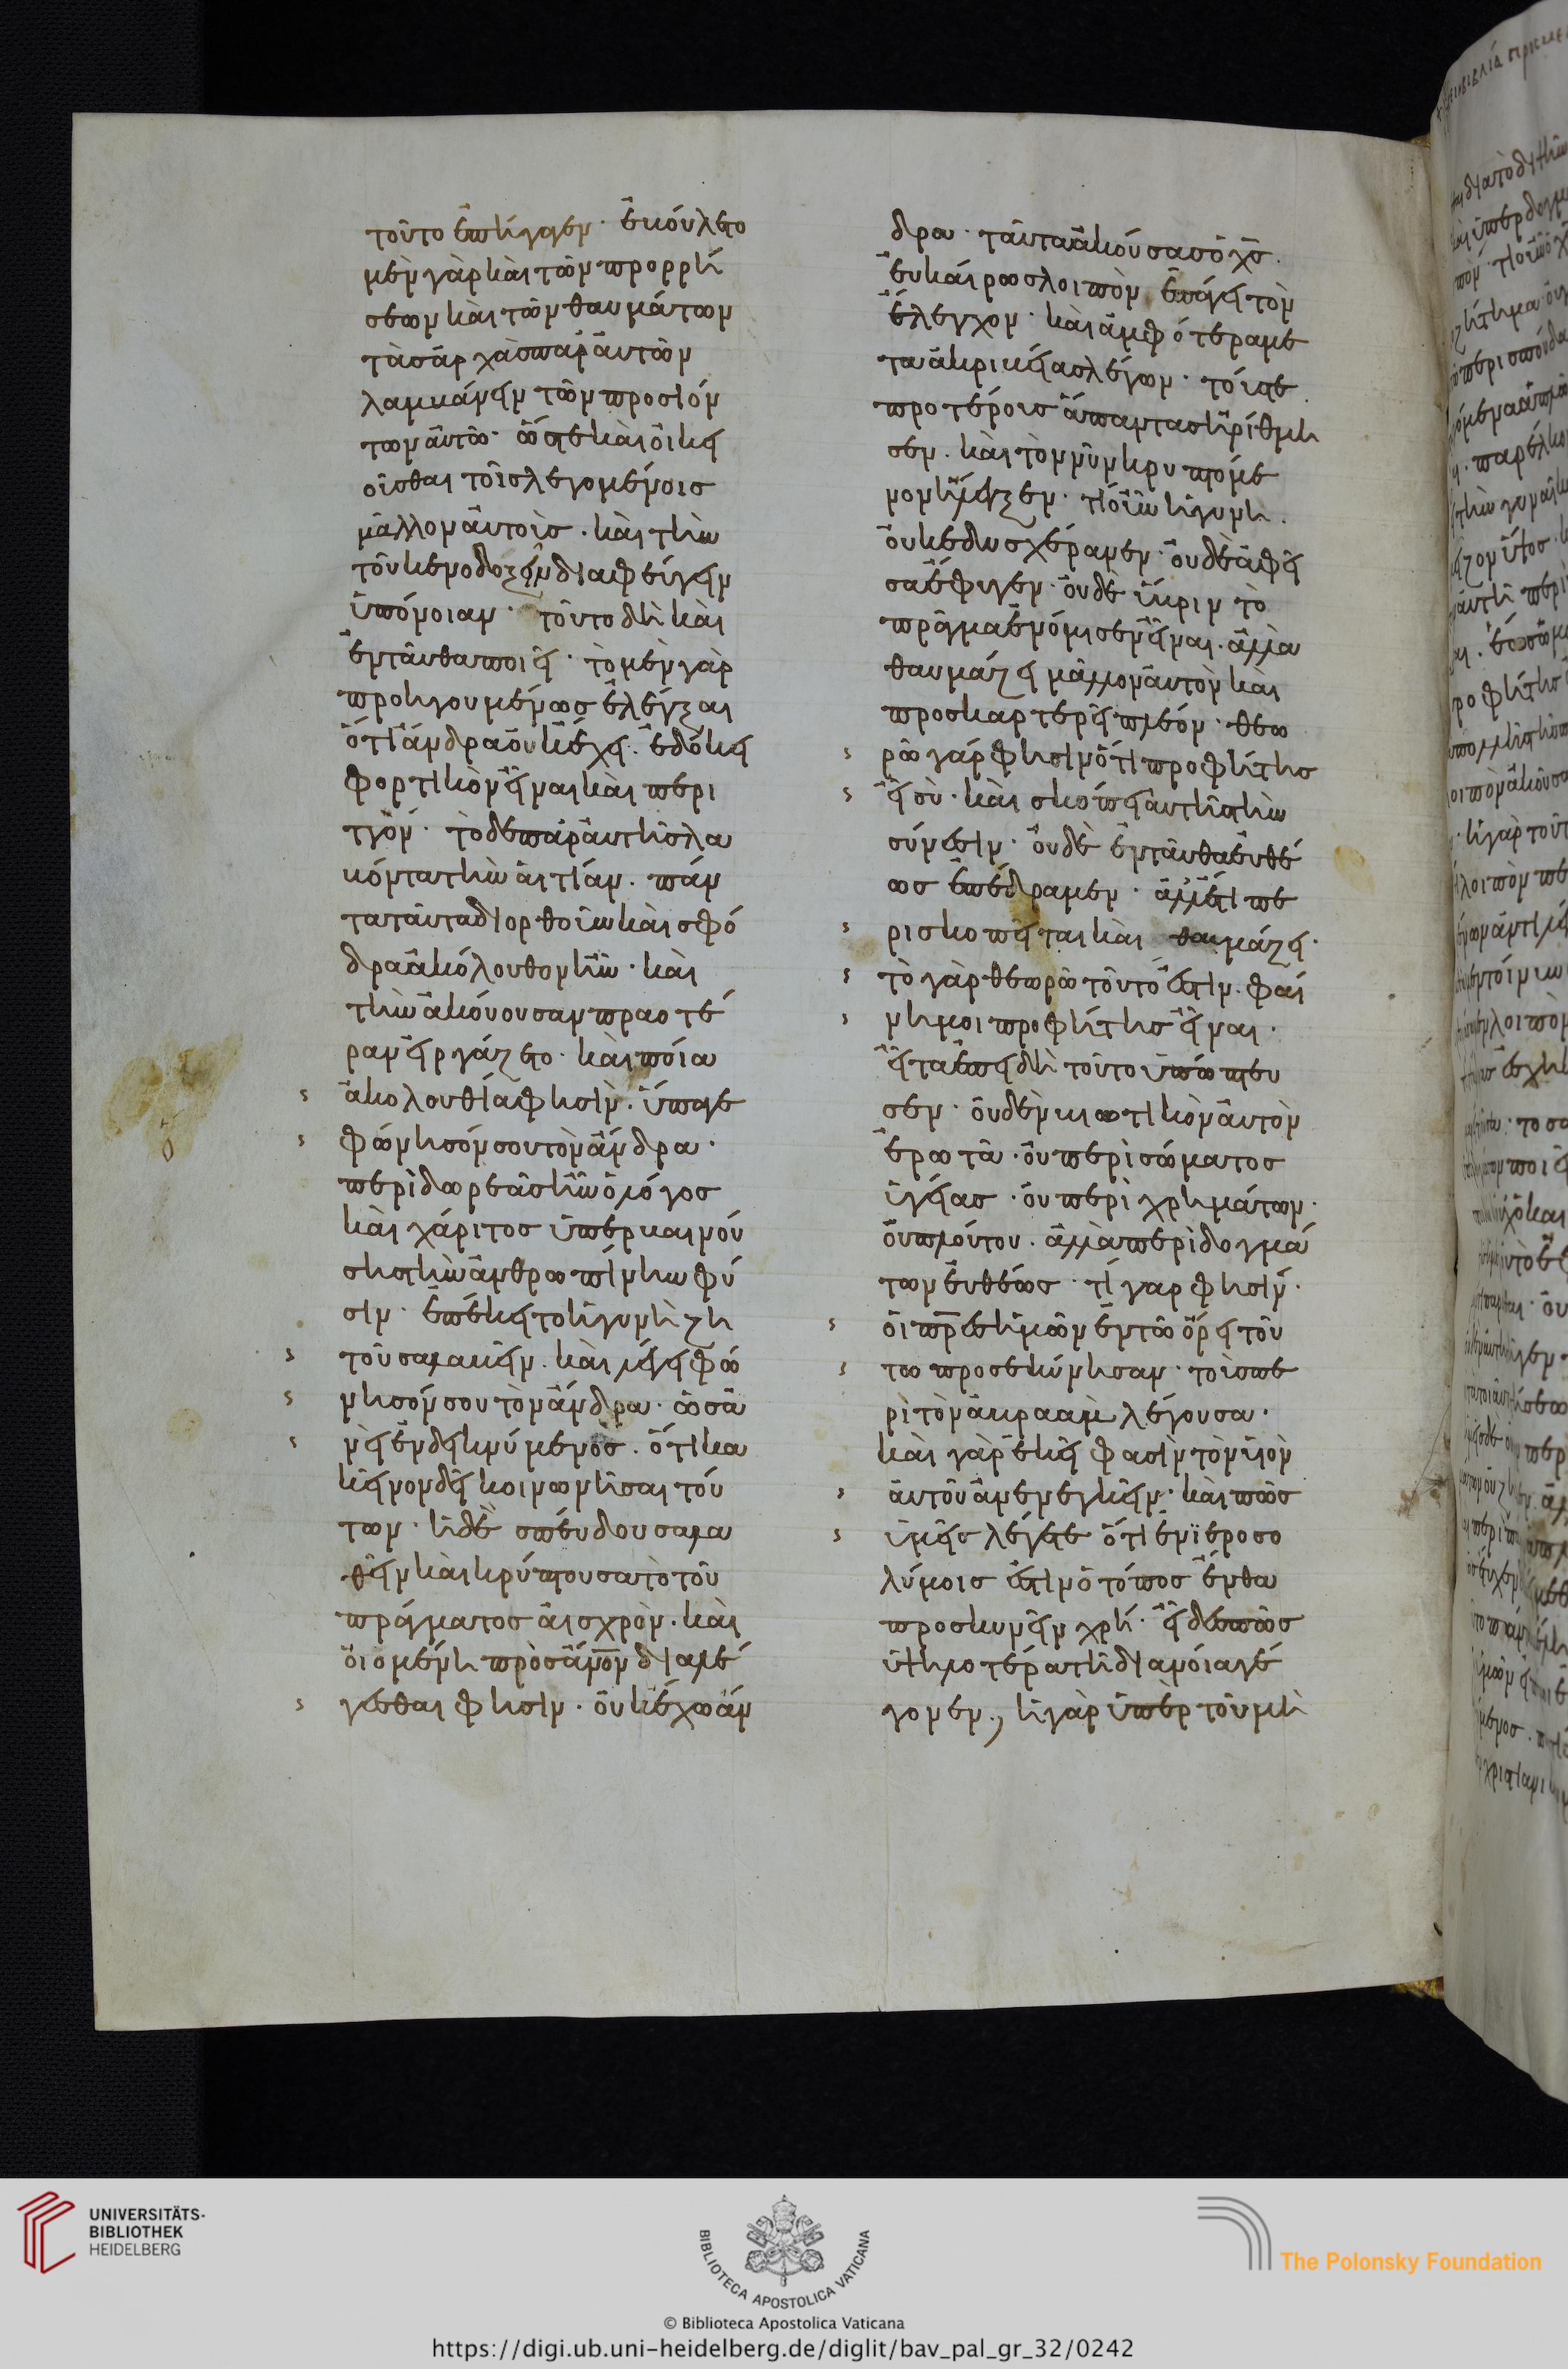 τοῦτο ἐπήγαγεν· ἐβούλετο
μὲν γὰρ καὶ τῶν προρρή
σεων καὶ τῶν θαυμάτων
τὰσ ἀρχὰσ παρ' αὐτῶν
λαμβάνειν τῶν προσϊόν
των αὐτῶ· ὥστε καὶ οἰκει
οῦσθαι τοῖσ λεγομένοισ
μᾶλλον αὐτοὺσ· καὶ τὴν
τοῦ κενοδοξεῖν διαφεύγειν
ὑπόνοιαν· τοῦτο δὴ καὶ
ἐνταῦθα ποιεῖ· τὸ μὲν γὰρ
προηγουμένωσ ἐλέγξαι
ὅτι ἄνδρα οὐκ ἔχει· ἐδόκει
φορτικὸν εἶναι καὶ περι
τγόν· τὸ δὲ παρ' αὐτῆσ λα
βόντα τὴν αἰτίαν· πάν
τα ταῦτα διορθοῦν καὶ σφό
δρα ἀκόλουθον ἦν· καὶ
τὴν ἀκούουσαν πραοτέ
ραν εἰργάζετο· καὶ ποία
ἀκολουθία φησίν· ὕπαγε
φώνησόν σου τὸν ἄνδρα·
περὶ δωρεᾶσ ἦν ὁ λόγοσ
καὶ χάριτοσ ὑπερβαινού
σησ τὴν ἀνθρωπίνην φύ
σιν· ἐπέκειτο ἡ γυνὴ ζη
τοῦσα λαβεῖν· καὶ λέγει φώ
νησόν σου τὸν ἄνδρα· ὡσα
νεὶ ἐνδεικνύμενοσ· ὅτι κα
κεῖνον δεῖ κοινωνῆσαι τού
των· ἡ δὲ σπεύδουσα λα
θεῖν καὶ κρύπτουσα τὸ τοῦ
πράγματοσ αἰσχρὸν· καὶ
οἰομένη πρὸσ ἄνον διαλέ
γεσθαι φησίν· οὐκ ἔχω ἄν
δρα· ταῦτα ἀκούσασ ὁ χσ·
εὐκαίρωσ λοιπὸν ἐπάγει τὸν
ἔλεγχον· καὶ ἀμφότερα με
τὰ ἀκριβείασ λέγων· τούσ τε
προτέρουσ ἅπαντασ ἠρίθμη
σεν· καὶ τὸν νῦν κρυπτόμε
νον ἤλεγξεν· τί οὖν ἡ γυνή·
οὐκ ἐδυσχέρανεν· οὐδὲ ἀφεῖ
σα ἔφυγεν· οὐδὲ ὕβριν τὸ
πρᾶγμα ἐνόμισεν εἶναι· ἀλλὰ
θαυμάζει μᾶλλον αὐτὸν καὶ
προσκαρτερεῖ πλέον· θεω
ρῶ γάρ φησιν ὅτι προφήτησ
εἶ σὺ· καὶ σκόπει αὐτῆσ τὴν
σύνεσιν· οὐδὲ ἐνταῦθα εὐθέ
ωσ ἐπέδραμεν· ἀλλ' ἔτι πε
ρισκοπεῖται καὶ θαυμάζει·
τὸ γὰρ θεωρῶ τοῦτό ἐστιν· φαί
νη μοι προφήτησ εἶναι·
εἶτα ἐπειδὴ τοῦτο ὑπώπτευ
σεν· οὐδὲν βιωτικὸν αὐτὸν
ἐρωτᾶ· οὐ περὶ σώματοσ
ὑγείασ· οὐ περὶ χρημάτων·
οὐ πλούτου· ἀλλὰ περὶ δογμά
των εὐθέωσ· τί γαρ φησίν·
οἱ πρεσ ἡμῶν ἐν τῶ ὄρει τού
τω προσεκύνησαν· τοὺσ πε
ρὶ τὸν ἀβραὰμ λέγουσα·
καὶ γὰρ ἐκεῖ φασὶν τὸν υἱὸν
αὐτοῦ ἀνενεγκεῖν· καὶ πῶσ
ὑμεῖσ λέγετε ὅτι ἐν ϊεροσο
λύμοισ ἐστὶν ὁ τόποσ ἔνθα
προσκυνεῖν χρή· εἶδεσ πῶσ
ὑψηλοτέρα τῆ διανοία γέ
γονεν· ἡ γὰρ ὑπὲρ τοῦ μὴ
UNIVERSITÄTS-
BIBLIOTHEK
HEIDELBERG
BIBLIOTECA APOSTOLICA VATICANA
The Polonsky Foundation
© Biblioteca Apostolica Vaticana
https://digi.ub.uni-heidelberg.de/diglit/bav_pal_gr_32/0242